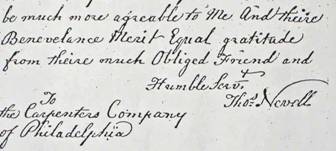 be much more agreeable to Me And theire
Benevelance Merit Equal gratitude
from theire much Obliged Friend and
Humble Servt
Thos Nevell
To
the Carpenters Company
of Philadelphia